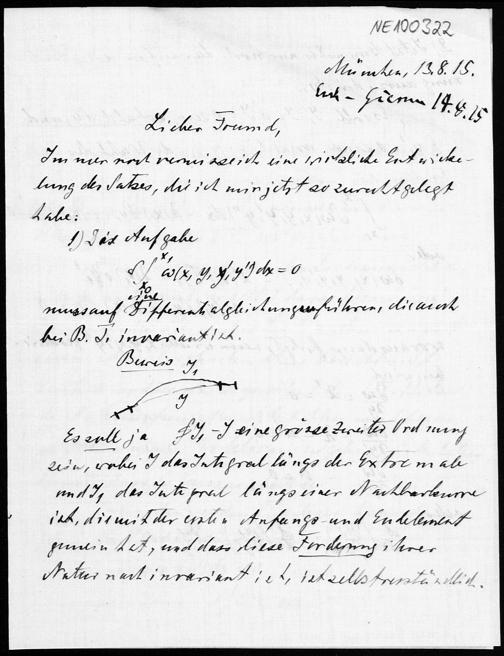 NE100322
München, 13.8.15.
14.8.15
Lieber Freund,
Immer noch vermisse ich eine wirkliche Entwicke-
lung des Satzes, die ich mir jetzt so zurechtgelegt
habe:
1) Die Aufgabe
δ∫ ω(x, y, y', y'') dx = 0
x₁
x₀
muss auf eine Differentialgleichung führen, die auch
bei B. T. invariant ist.
Beweis
J₁
J
Es soll ja J₁ - J eine grösse zweiter Ordnung
sein, wobei J das Integral längs der Extremale
und J₁ das Integral längs einer Nachbarkurve
ist, die mit der ersten Anfangs- und Endelement
gemein hat, und dass diese Forderung ihrer
Natur nach invariant ist, ist selbstverständlich.